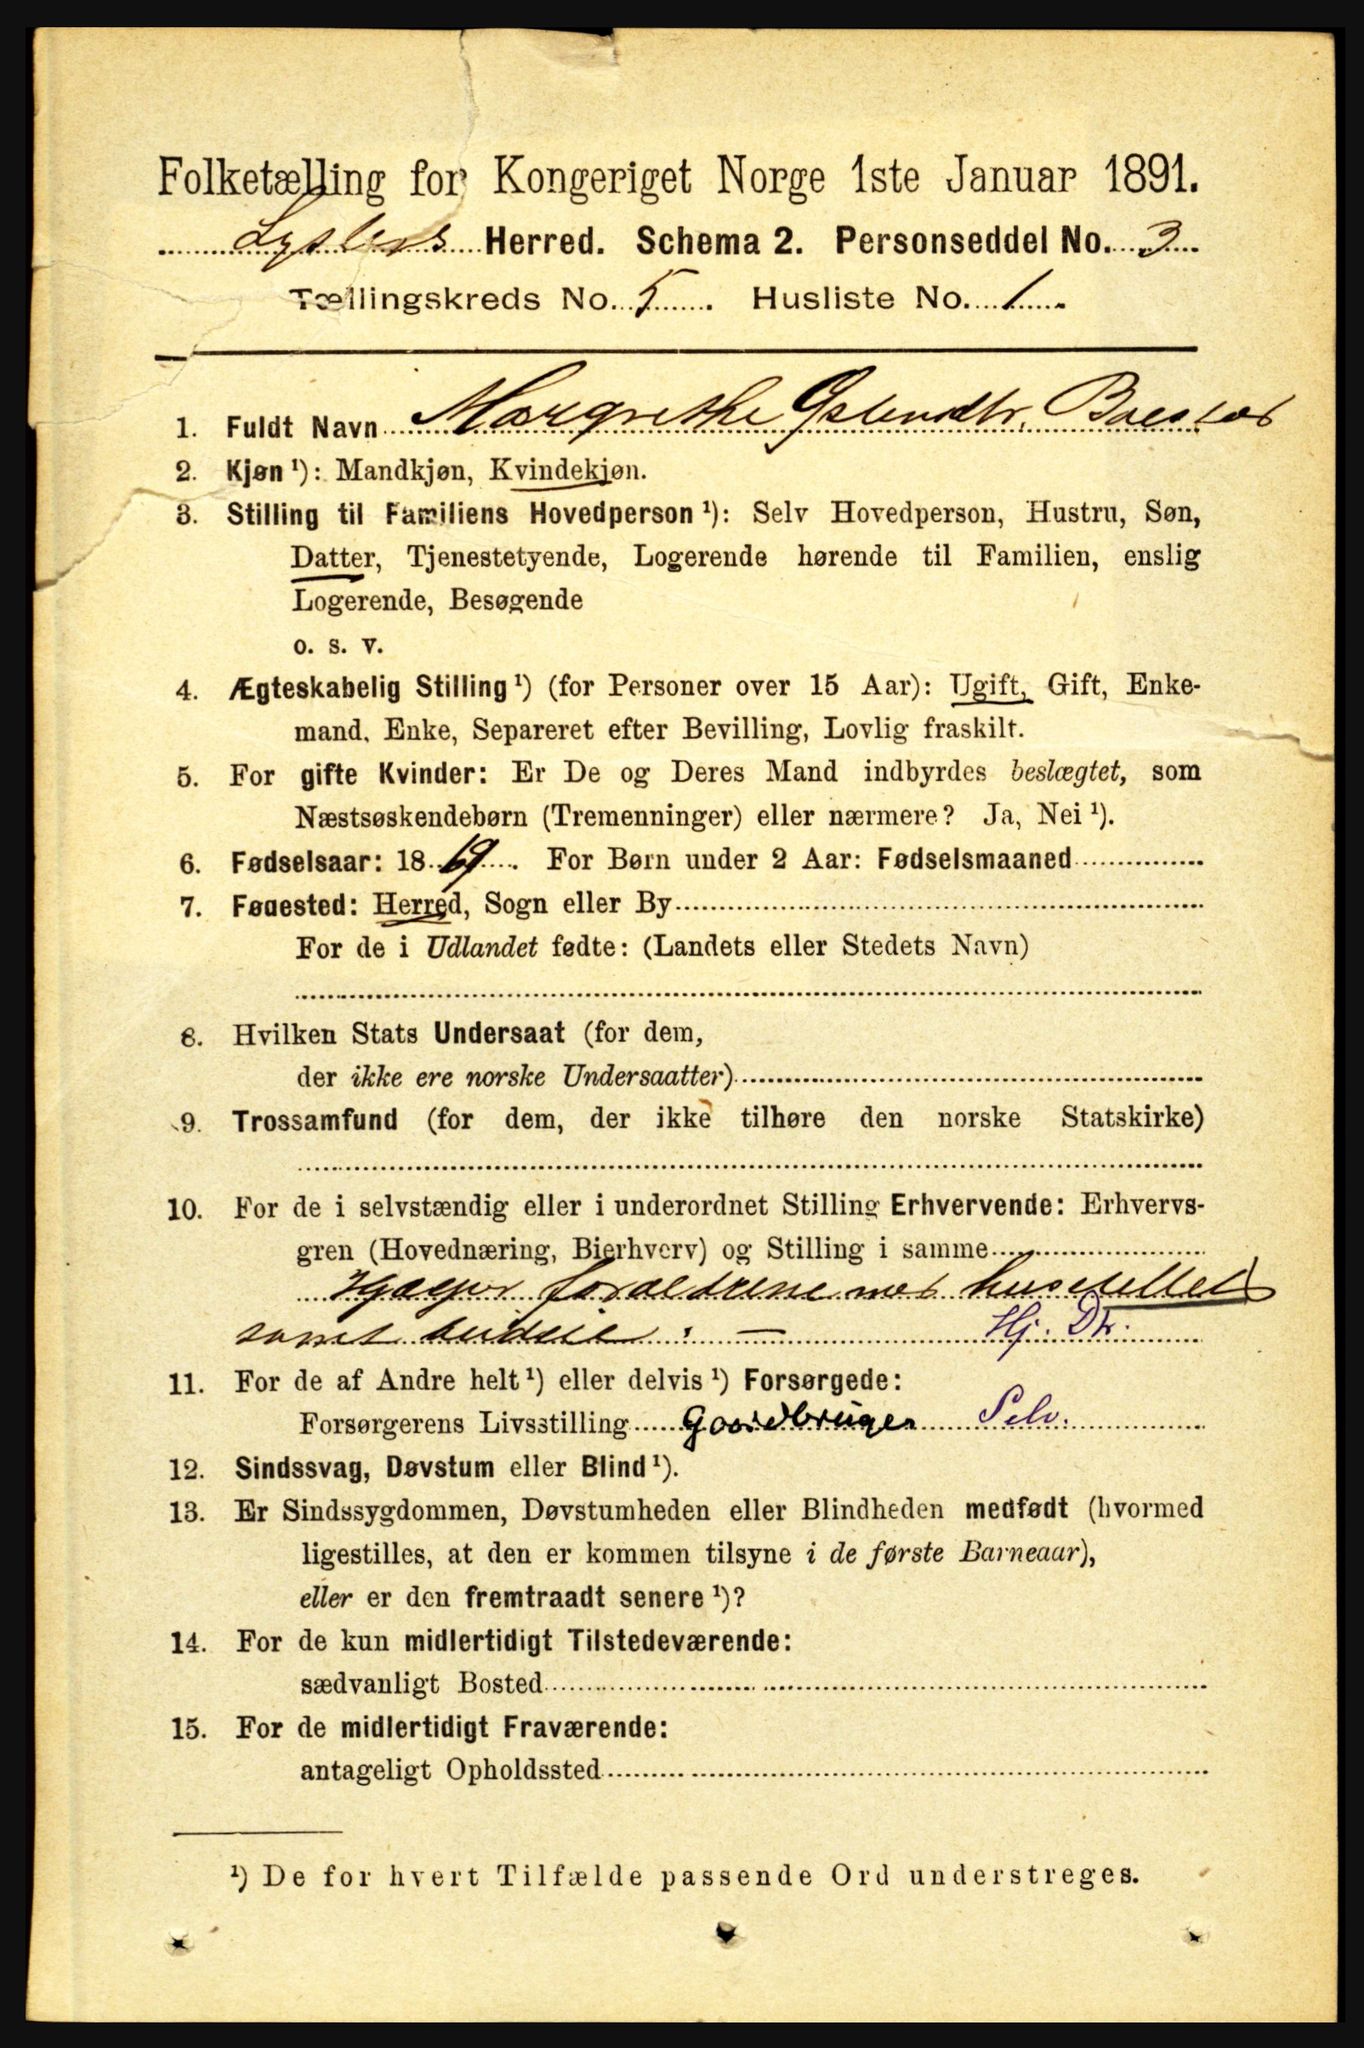 Folketælling for Kongeriget Norge 1ste Januar 1891.
Lysters Herred. Schema 2. Personseddel No. 3
Tællingskreds No. 5. Husliste No. 1.
1. Fuldt Navn Margrethe Østendtr.
2. Kjøn ¹): Mandkjøn, Kvindekjøn.
3. Stilling til Familiens Hovedperson ¹): Selv Hovedperson, Hustru, Søn,
Datter, Tjenestetyende, Logerende hørende til Familien, enslig
Logerende, Besøgende
o. s. v.
4. Ægteskabelig Stilling ¹) (for Personer over 15 Aar): Ugift, Gift, Enke-
mand, Enke, Separeret efter Bevilling, Lovlig fraskilt.
5. For gifte Kvinder: Er De og Deres Mand indbyrdes beslægtet, som
Næstsøskendebørn (Tremenninger) eller nærmere? Ja, Nei ¹).
6. Fødselsaar: 1869. For Børn under 2 Aar: Fødselsmaaned
7. Fødested: Herred, Sogn eller By
For de i Udlandet fødte: (Landets eller Stedets Navn)
8. Hvilken Stats Undersaat (for dem,
der ikke ere norske Undersaatter)
9. Trossamfund (for dem, der ikke tilhøre den norske Statskirke)
10. For de i selvstændig eller i underordnet Stilling Erhvervende: Erhvervs-
gren (Hovednæring, Bierhverv) og Stilling i samme
Hjælper forældrene med husstellet
samt budeie. — Hj. Dtr.
11. For de af Andre helt ¹) eller delvis ¹) Forsørgede:
Forsørgerens Livsstilling Gaardbruger Selv.
12. Sindssvag, Døvstum eller Blind ¹).
13. Er Sindssygdommen, Døvstumheden eller Blindheden medfødt (hvormed
ligestilles, at den er kommen tilsyne i de første Barneaar),
eller er den fremtraadt senere ¹)?
14. For de kun midlertidigt Tilstedeværende:
sædvanligt Bosted
15. For de midlertidigt Fraværende:
antageligt Opholdssted
¹) De for hvert Tilfælde passende Ord understreges.